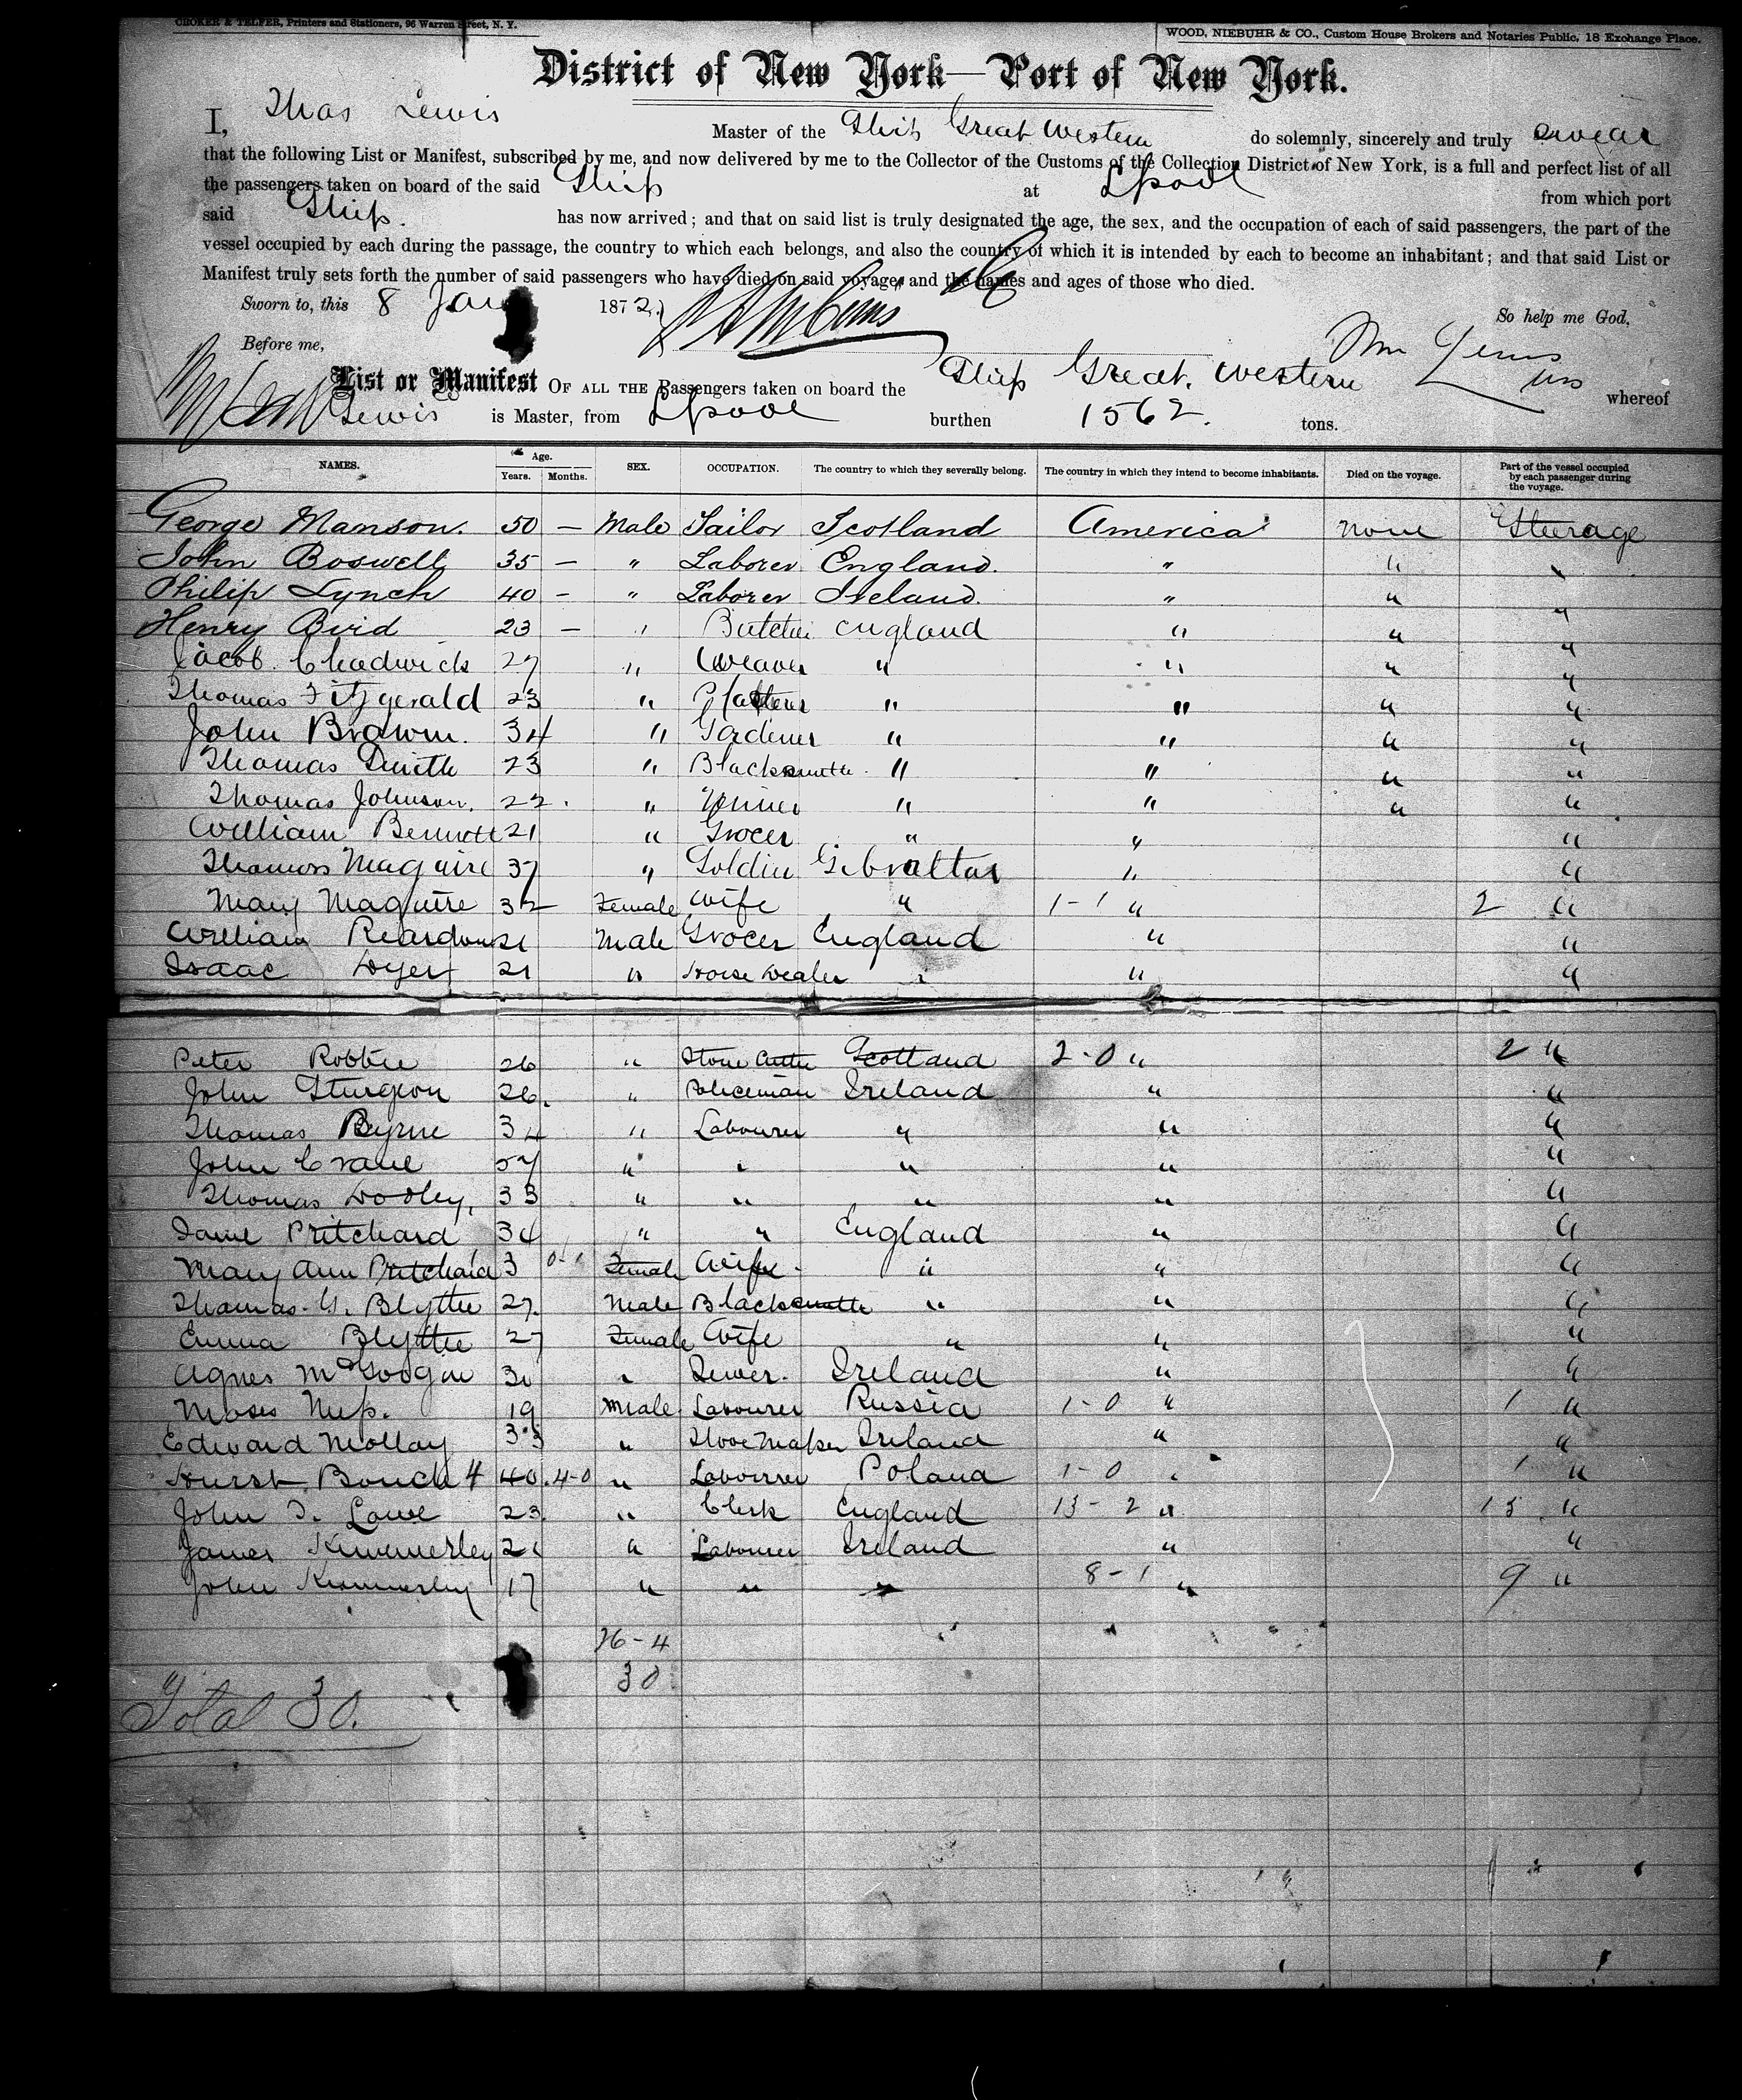 CROKER & TELFER, Printers and Stationers, 96 Warren Street, N. Y.
WOOD, NIEBUHR & CO., Custom House Brokers and Notaries Public, 18 Exchange Place.
District of New York—Port of New York.
I, Thos Lewis Master of the Ship Great Western do solemnly, sincerely and truly swear
that the following List or Manifest, subscribed by me, and now delivered by me to the Collector of the Customs of the Collection District of New York, is a full and perfect list of all
the passengers taken on board of the said Ship at Lpool from which port
said Ship. has now arrived; and that on said list is truly designated the age, the sex, and the occupation of each of said passengers, the part of the
vessel occupied by each during the passage, the country to which each belongs, and also the country of which it is intended by each to become an inhabitant; and that said List or
Manifest truly sets forth the number of said passengers who have died on said voyage, and the names and ages of those who died.
Sworn to, this 8 Jany 1872. So help me God,
Before me,
List or Manifest OF ALL THE Passengers taken on board the Ship Great Western whereof
Lewis is Master, from Lpool burthen 1562. tons.
NAMES. Age. Years. Months. SEX. OCCUPATION. The country to which they severally belong. The country in which they intend to become inhabitants. Died on the voyage. Part of the vessel occupied by each passenger during the voyage.
George Manson. 50 — Male Tailor Scotland America none Steerage
John Boswell 35 — " Laborer England. " " "
Philip Lynch 40 — " Laborer Ireland. " " "
Henry Bird 23 — " Butcher England " " "
Jacob Chadwick 27 " Weaver " " " "
Thomas Fitzgerald 23 " " " " "
John Brown. 34 " Gardener " " " "
Thomas Smith 23 " Blacksmith " " " "
Thomas Johnson. 22. " Miner " " " "
William Bennett 21 " Grocer " " "
Thomas Maguire 37 " Soldier Gibraltar " "
Mary Maguire 32 Female Wife " 1-1 " 2 "
William Reardon 21 Male Grocer England " "
Isaac Dyer 21 " Horse Dealer " " "
Peter Robbie 26 " Stone Cutter Scotland 2-0 " 2 "
John Sturgeon 26. " Policeman Ireland " "
Thomas Byrne 34 " Labourer " " "
John Crane 57 " " " " "
Thomas Dooley, 33 " " " " "
Pritchard 34 " " England " "
Mary Ann Pritchard 3 0-1 Female Wife " " "
Thomas G. Blythe 27. Male Blacksmith " " "
Emma Blythe 27 Female Wife " " "
Agnes " Sewer. Ireland " "
Moses 19 Male Labourer Russia 1-0 " 1 "
Edward Molloy 33 " Shoe Maker Ireland " "
40. 4-0 " Labourer Poland 1-0 " 1 "
John T. Lowe 23. " Clerk England 13-2 " 15 "
James Kimmerley 21 " Labourer Ireland " "
John Kimmerley 17 " " " 8-1 " 9 "
26-4
30
Total 30.